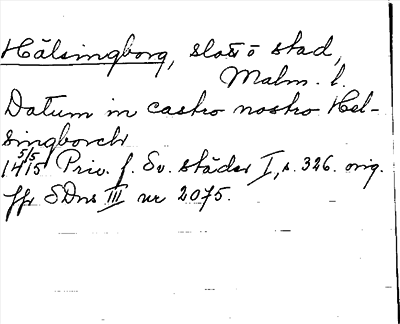 Hälsingborg, slott o stad,
Malm. l.
Datum in castro nostro Hel-
singborch
5/5
1415 Priv. f. Sv. städer I, s. 326. orig.
jfr SDns III nr 2075.